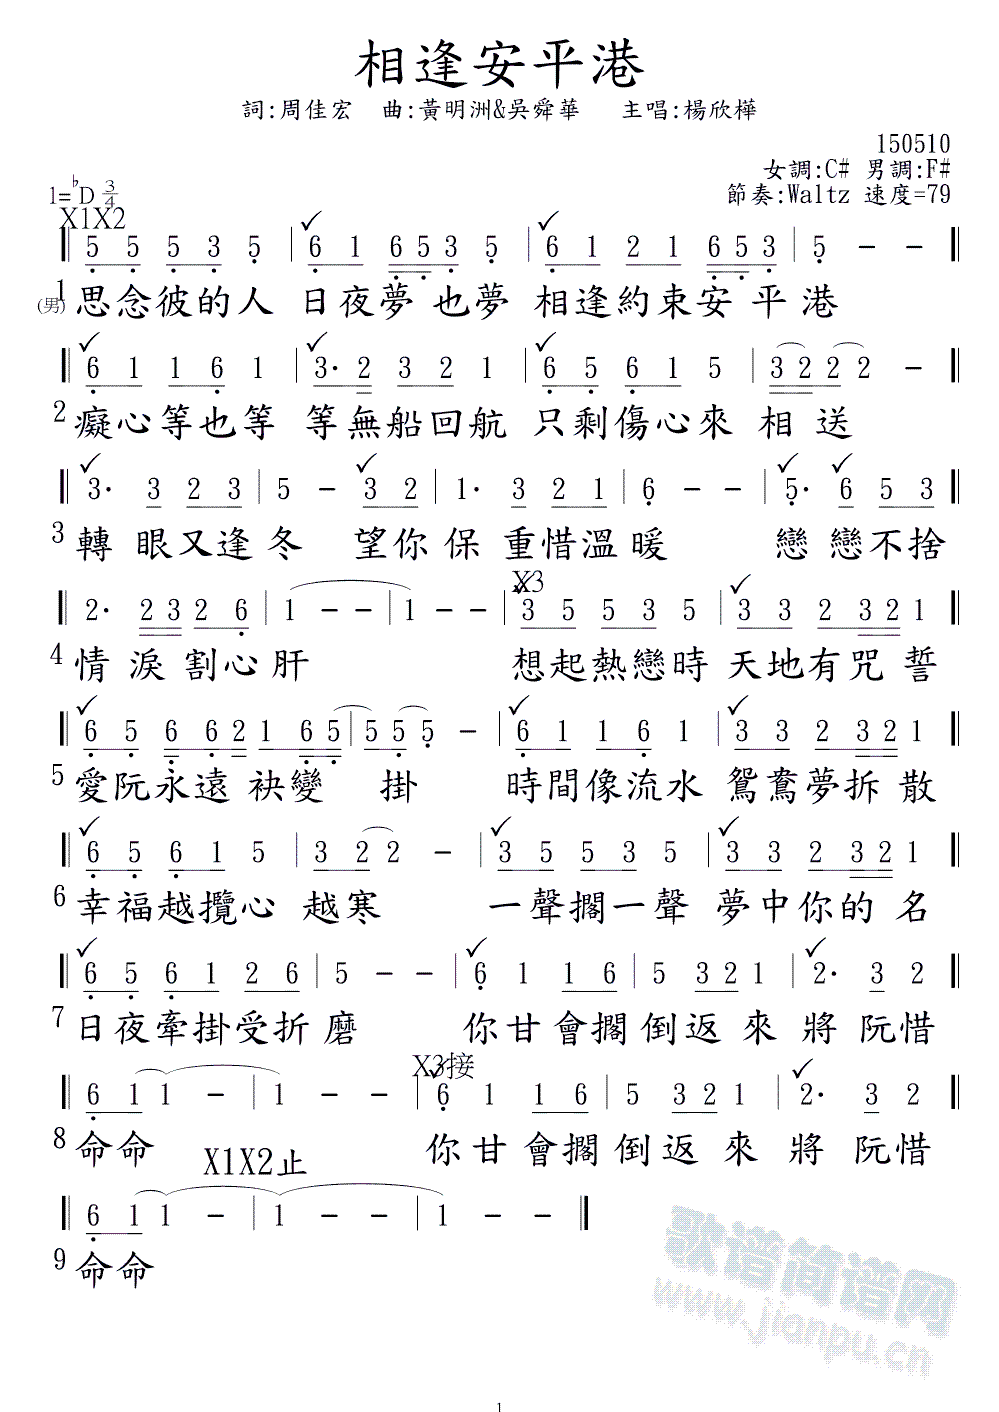 相逢安平港
詞:周佳宏 曲:黃明洲&吳舜華 主唱:楊欣樺
150510
女調:C# 男調:F#
1=♭D 3/4 節奏:Waltz 速度=79
X1X2
5 5 5 3 5 | 6 1 6 5 3 5 | 6 1 2 1 6 5 3 | 5 - -
1 (男) 思念彼的人 日夜夢 也夢 相逢約束安 平 港
6 1 1 6 1 | 3· 2 3 2 1 | 6 5 6 1 5 | 3 2 2 2 -
2 癡心等也等 等無船回航 只剩傷心來 相 送
3· 3 2 3 | 5 - 3 2 | 1· 3 2 1 | 6 - - | 5· 6 5 3
3 轉 眼又逢冬 望你保 重惜溫暖 戀 戀不捨
X3
2· 2 3 2 6 | 1 - - | 1 - - | 3 5 5 3 5 | 3 3 2 3 2 1
4 情 淚割心肝 想起熱戀時 天地有咒 誓
6 5 6 6 2 1 6 5 | 5 5 5 - | 6 1 1 6 1 | 3 3 2 3 2 1
5 愛阮永遠 袂變 掛 時間像流水 鴛鴦夢拆 散
6 5 6 1 5 | 3 2 2 - | 3 5 5 3 5 | 3 3 2 3 2 1
6 幸福越攬心 越寒 一聲擱一聲 夢中你的 名
6 5 6 1 2 6 | 5 - - | 6 1 1 6 | 5 3 2 1 | 2· 3 2
7 日夜牽掛受折 磨 你甘會擱 倒返 來 將 阮惜
X3接
6 1 1 - | 1 - - | 6 1 1 6 | 5 3 2 1 | 2· 3 2
8 命命 你甘會擱 倒返 來 將 阮惜
X1X2止
6 1 1 - | 1 - - | 1 - -
9 命命
歌谱简谱网
www.jianpu.cn
1